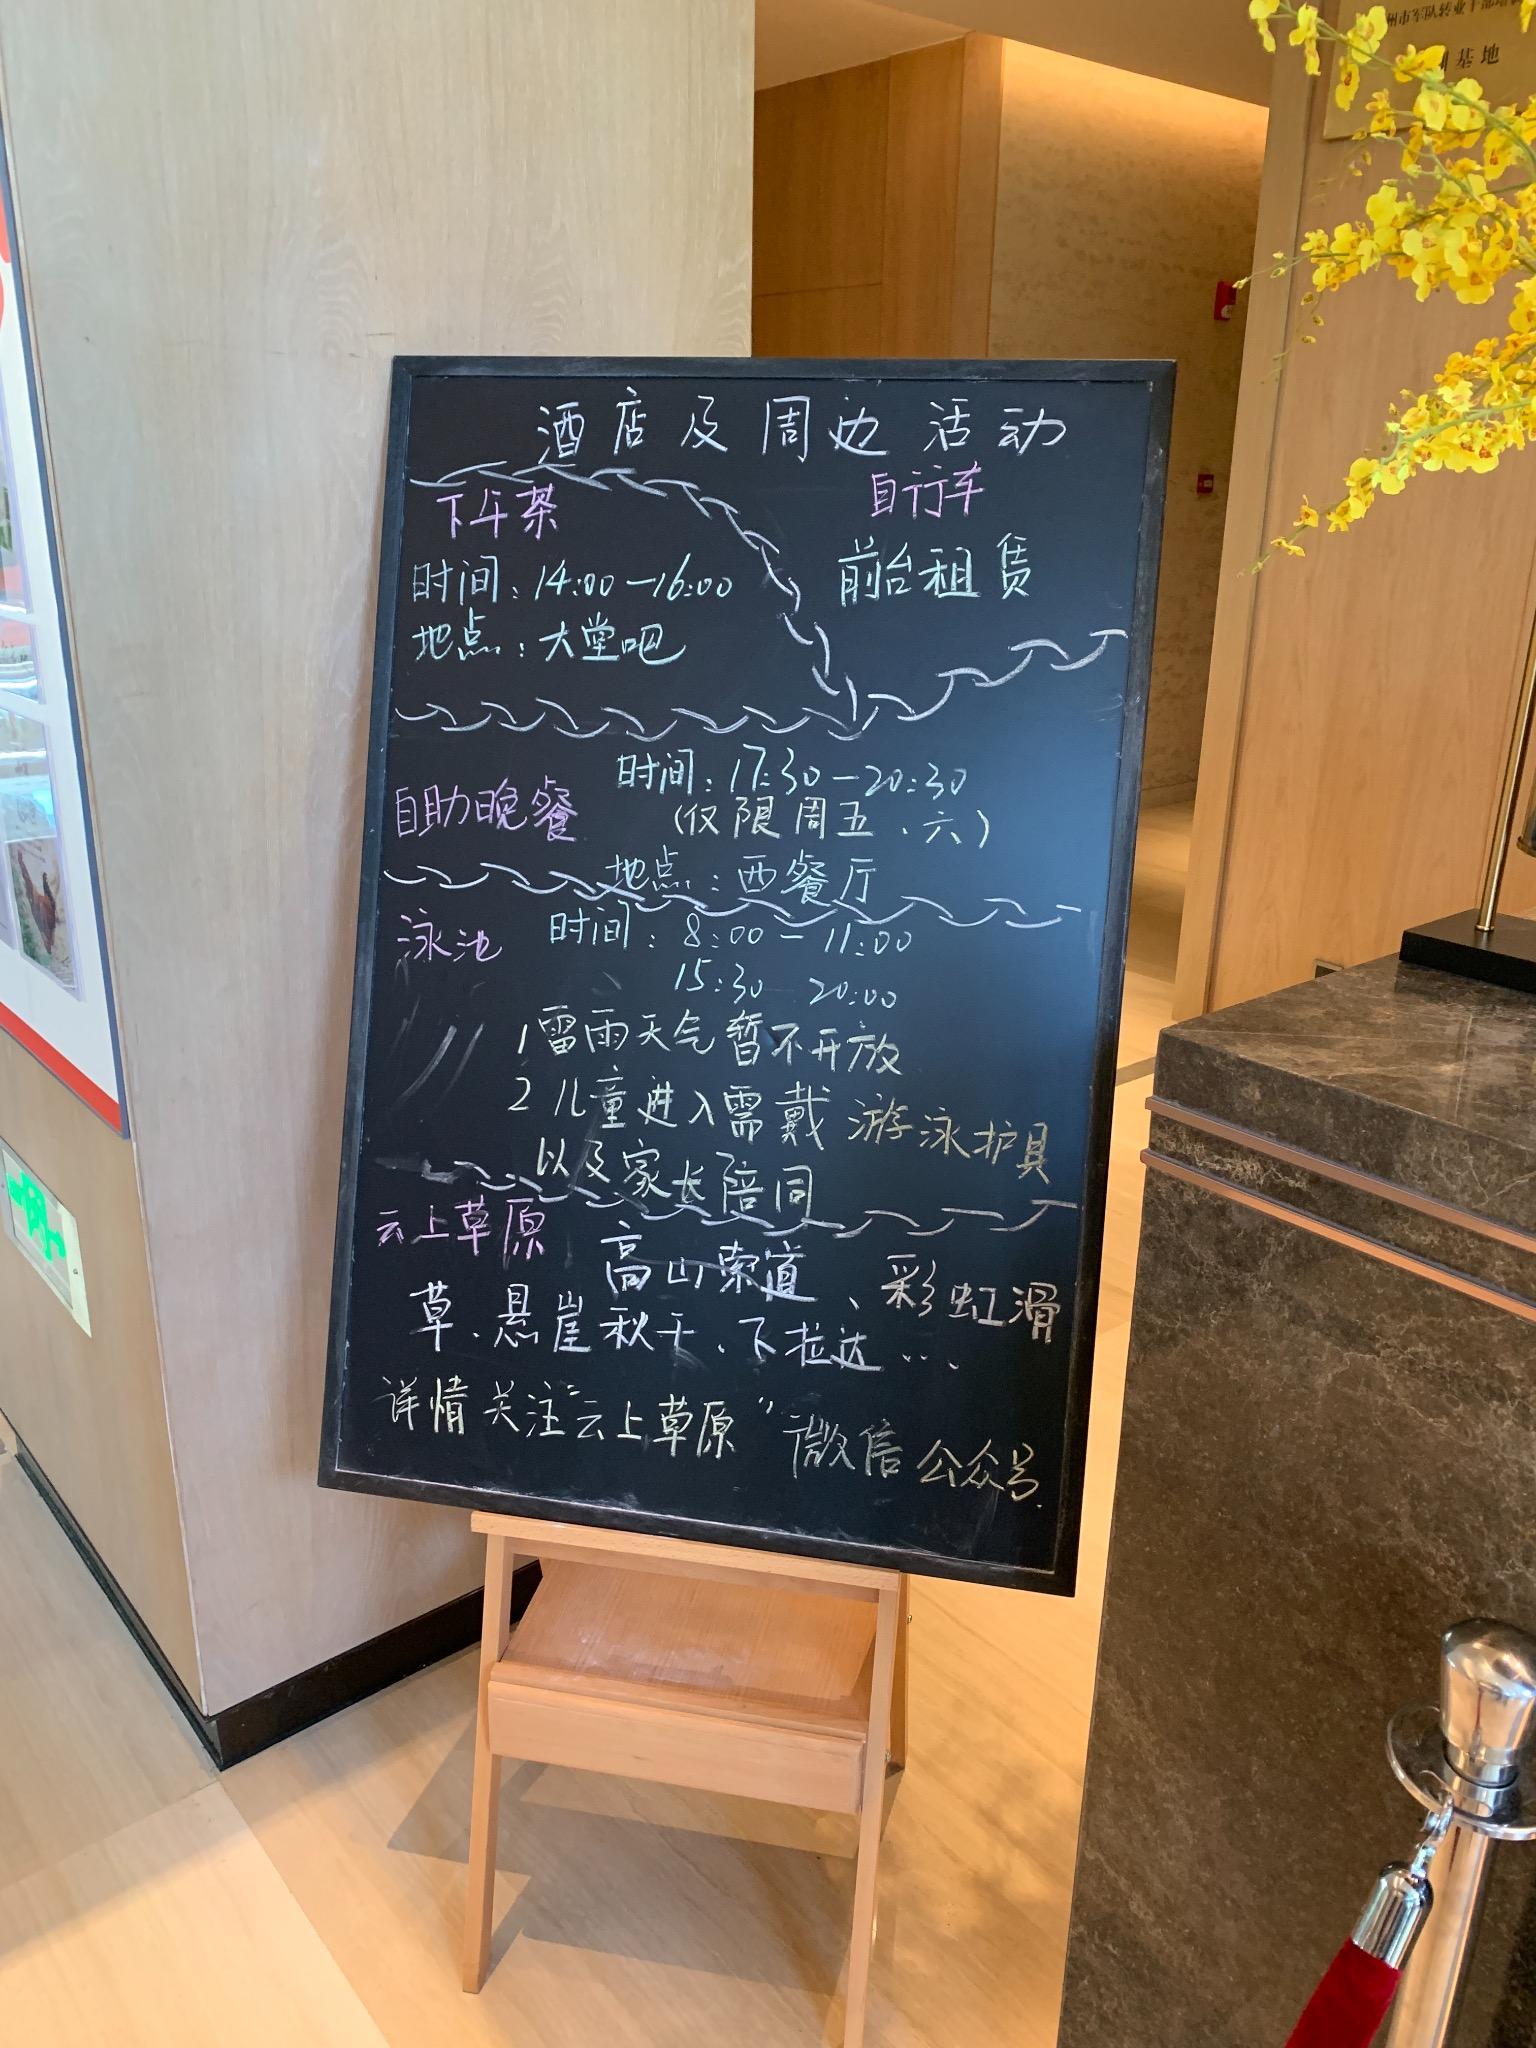 酒店及周边活动
下午茶
时间：14:00—16:00
地点：大堂吧
自行车
前台租赁
自助晚餐
时间：17:30—20:30
（仅限周五、六）
地点：西餐厅
泳池
时间：8:00—11:00
15:30 20:00
1雷雨天气暂不开放
2儿童进入需戴游泳护具
以及家长陪同
云上草原
高山索道、彩虹滑
草、悬崖秋千、下拉达...
详情关注“云上草原”微信公众号.
州市军队转业干部培训
训基地